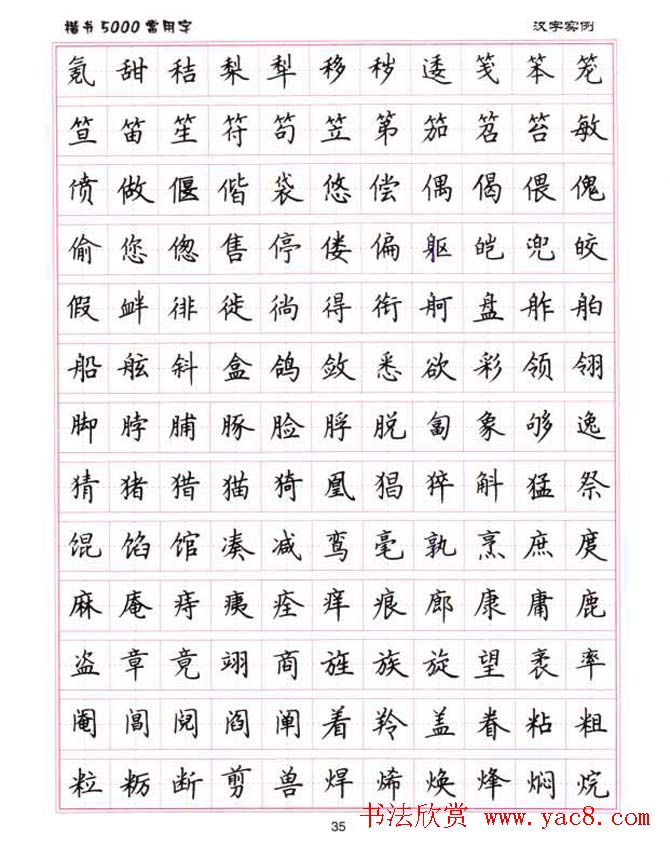 楷书5000常用字 汉字实例
氪 甜 秸 梨 犁 移 秽 逶 笺 笨 笼
笪 笛 笙 符 笱 笠 第 笳 笤 笞 敏
偾 做 偃 偕 袋 悠 偿 偶 偈 偎 傀
偷 您 偬 售 停 偻 偏 躯 皑 兜 皎
假 衅 徘 徙 徜 得 衔 舸 盘 舴 舶
船 舷 斜 盒 鸽 敛 悉 欲 彩 领 翎
脚 脖 脯 豚 脸 脬 脱 匐 象 够 逸
猜 猪 猎 猫 猗 凰 猖 猝 斛 猛 祭
馄 馅 馆 凑 减 鸾 毫 孰 烹 庶 度
麻 庵 痔 痍 痊 痒 痕 廊 康 庸 鹿
盗 章 竟 翊 商 旌 族 旋 望 袤 率
阉 阊 阋 阎 阐 着 羚 盖 眷 粘 粗
粒 粝 断 剪 兽 焊 烯 焕 烽 焖 烷
35
书法欣赏 www.yac8.com